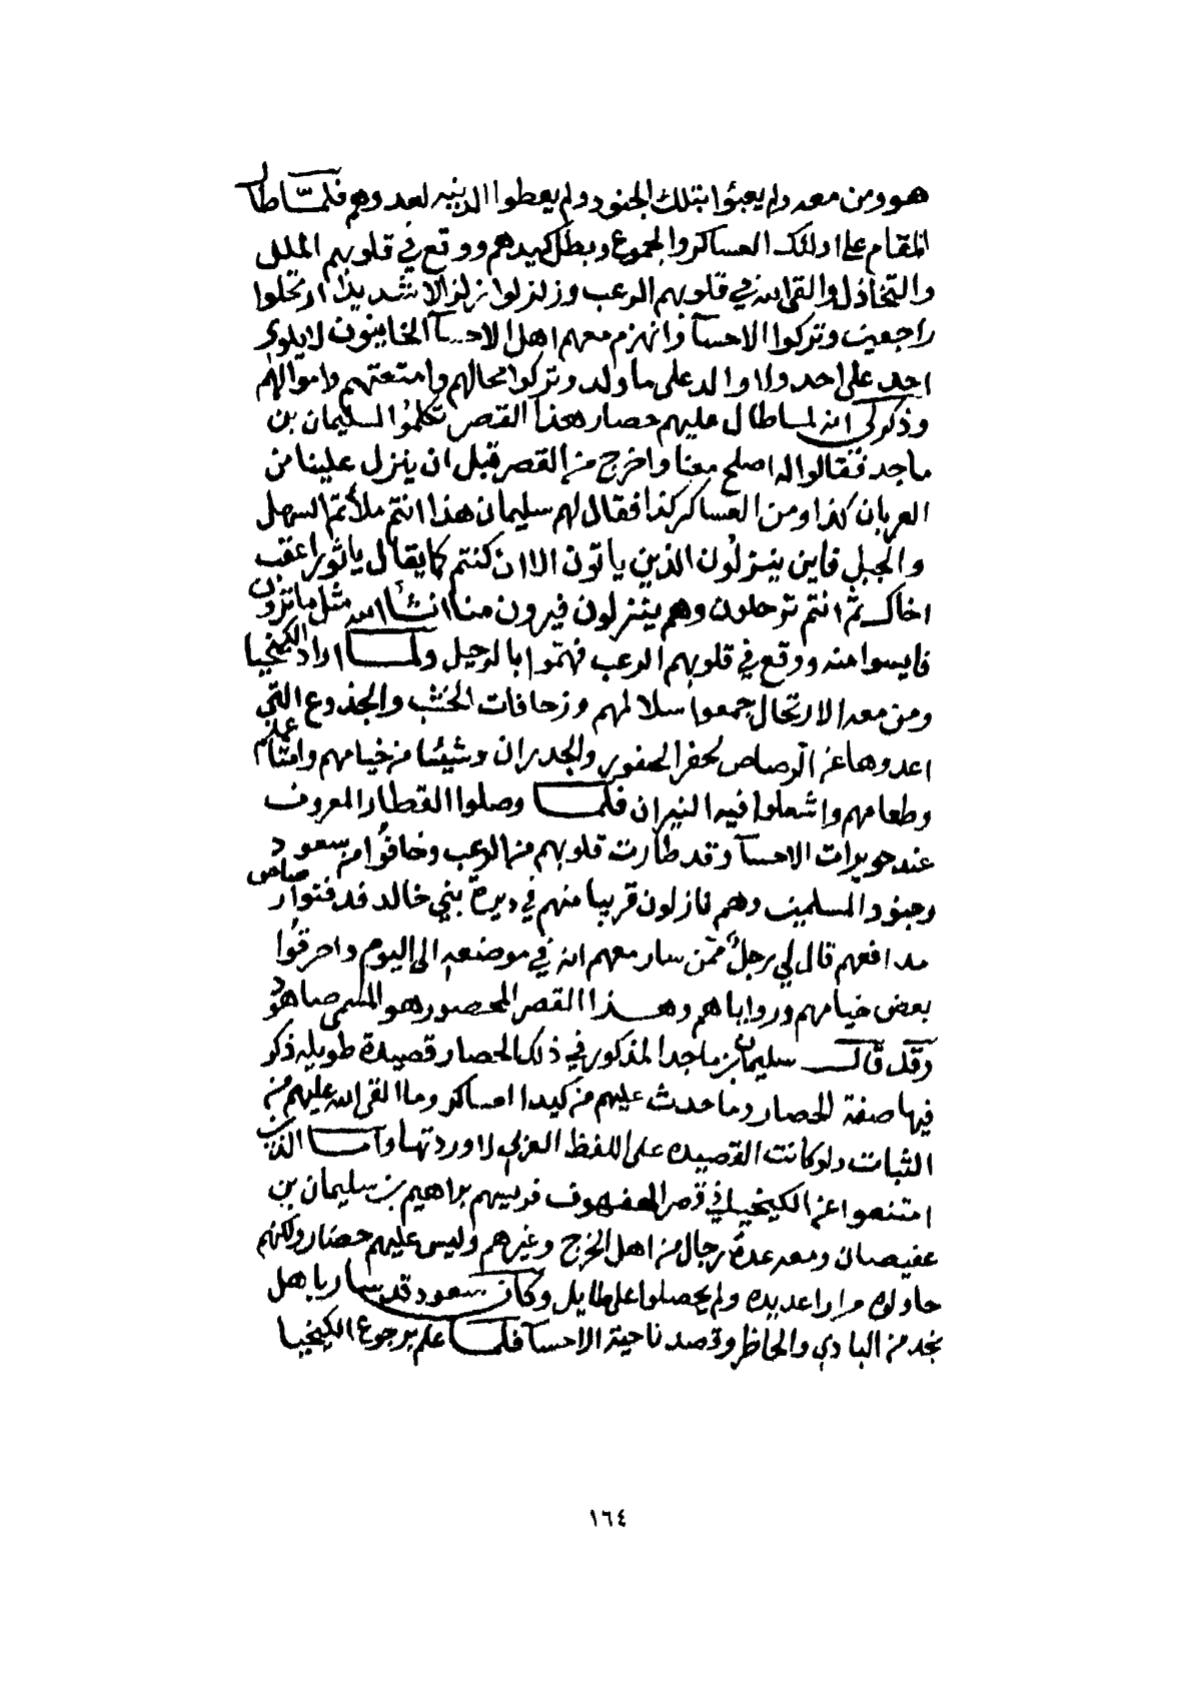 هو ومن معه ولم يعبئوا بتلك الجنود ولم يعطوا الدنيه لعدوهم فلمّا طال
المقام على اولئك العساكر والجموع وبطل كيدهم ووقع في قلوبهم الملل
والتخاذل والقى الله في قلوبهم الرعب وزلزلوا زلزالا شديدا ارتحلوا
راجعين وتركوا الاحسآ وانهزم معهم اهل الاحسآ الخاينون لا يلوي
احد على احد ولا والد على ما ولد وتركوا محالهم وامتعتهم واموالهم
وذكر لي انه لما طال عليهم حصار هذا القصر تكلموا لسليمان بن
ماجد فقالوا له اصلح معنا واخرج من القصر قبل ان ينزل علينا من
العربان كذا ومن العساكر كذا فقال لهم سليمان هذا انتم ملأتم السهل
والجبل فاين ينزلون الذين ياتون الا ان كنتم كما يقال يا ثور اعقب
اخاك ثم انتم ترحلون وهم ينزلون فيرون منا انشأ الله مثل ما ترون
فايسوا منه ووقع في قلوبهم الرعب فهمّوا بالرحيل ولما اراد الكيخيا
ومن معه الارتحال جمعوا سلالمهم وزحافات الخشب والجذوع التي
اعدوها عن الرصاص لحفر الحفور والجدران وشيئا من خيامهم وامتاعهم
وطعامهم واشعلوا فيه النيران فلما وصلوا القطار المعروف
عند جويرات الاحسآ وقد طارت قلوبهم من الرعب وخافوا من سعود
وجنود المسلمين وهم نازلون قريبا منهم في ديرة بني خالد فدفنوا رصاص
مدافعهم قال لي رجلٌ ممّن سار معهم انه في موضعه الى اليوم واحرقوا
بعض خيامهم ورواياهم وهذا القصر المحصور هو المسمى صاهود
وقد قال سليمان بن ماجد المذكور في ذلك الحصار قصيدة طويله ذكر
فيها صفة الحصار وما حدث عليهم من كيد العساكر وما القى الله عليهم من
الثبات ولو كانت القصيده على اللفظ العربي لاوردتها واما الذين
امتنعوا عن الكيخيا في قصر الهفهوف فرييسهم براهيم بن سليمان بن
عفيصان ومعه عدة رجال من اهل الخرج وغيرهم وليس عليهم حصار ولكنهم
حاولوه مرارا عديده ولم يحصلوا على طايل وكان سعود قد سار باهل
نجد من البادي والحاظر وقصد ناحية الاحسآ فلما علم برجوع الكيخيا
١٦٤